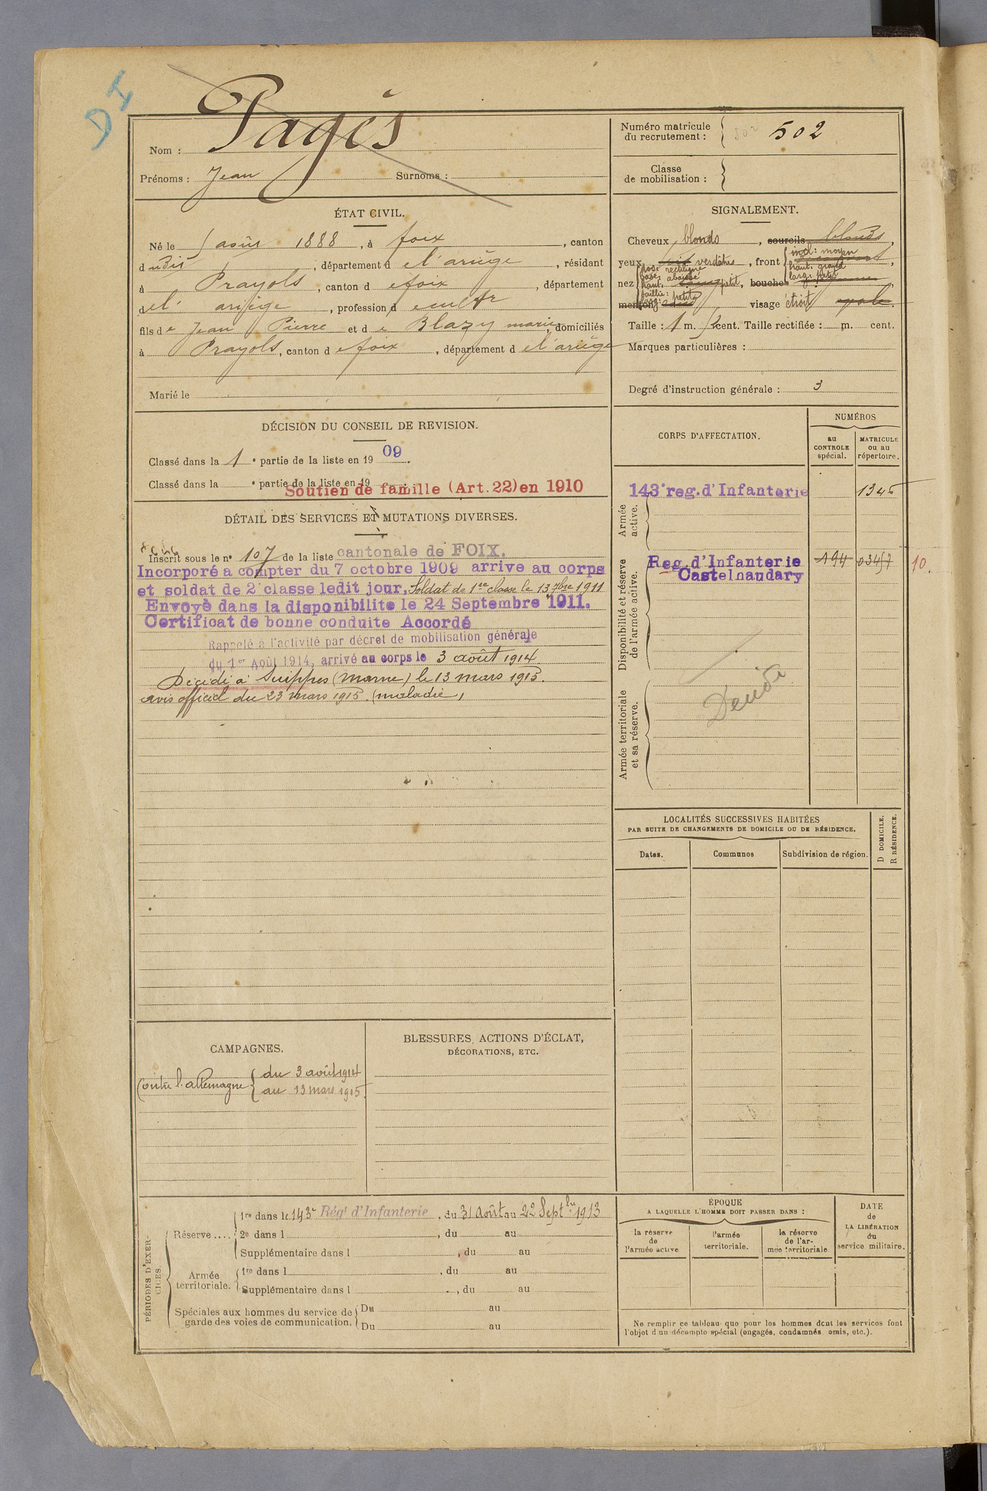 DI
Nom : Pagès
Prénoms : Jean Surnoms :
Numéro matricule
du recrutement : 502
Classe
de mobilisation :
ÉTAT CIVIL.
Né le 5 août 1888, à foix, canton
dudit, département de l'ariège, résidant
à Prayols, canton de foix, département
de l' ariège, profession de cultr
fils de Jean Pierre et de Blazy marie, domiciliés
à Prayols, canton de foix, département de l'ariège
Marié le
SIGNALEMENT.
Cheveux blonds, sourcils blonds,
yeux verdâtre, front incl: moyen
haut. grand
larg: petit
nez dos: rectiligne
base: abaissé
haut. petit, bouche
saillie: petite
menton visage étroit ovale
Taille : 1 m. cent. Taille rectifiée : m. cent.
Marques particulières :
Degré d'instruction générale : 3
DÉCISION DU CONSEIL DE REVISION.
Classé dans la 1e partie de la liste en 1909.
Classé dans la e partie de la liste en 19
Soutien de famille (Art. 22) en 1910
DÉTAIL DES SERVICES ET MUTATIONS DIVERSES.
Inscrit sous le n° 107 de la liste cantonale de FOIX.
Incorporé a compter du 7 octobre 1909 arrive au corps
et soldat de 2e classe ledit jour. Soldat de 1ere classe le 13 7bre 1911
Envoyé dans la disponibilite le 24 Septembre 1911.
Certificat de bonne conduite Accordé
Rappelé à l'activité par décret de mobilisation générale
du 1er Août 1914, arrivé au corps le 3 août 1914.
Décédé à Suippes (Marne) le 13 mars 1915.
avis officiel du 23 mars 1915. (maladie)
CORPS D'AFFECTATION.
NUMÉROS
au
CONTROLE
spécial.
MATRICULE
ou au
répertoire.
Armée
active.
143e reg. d'Infanterie 1345
Disponibilité et réserve
de l'armée active.
Reg. d'Infanterie 194 10.
Castelnaudary
Armée territoriale
et sa réserve.
LOCALITÉS SUCCESSIVES HABITÉES
PAR SUITE DE CHANGEMENTS DE DOMICILE OU DE RÉSIDENCE.
Dates. Communes Subdivision de région.
D DOMICILE.
R RÉSIDENCE.
CAMPAGNES.
Contre l'allemagne du 3 août 1914
au 13 mars 1915
BLESSURES, ACTIONS D'ÉCLAT,
DÉCORATIONS, ETC.
PÉRIODES D'EXER-
CICES.
Réserve....
1re dans le 143e Régt d'Infanterie, du 31 août au 22 Septbre 1913
2e dans l , du au
Supplémentaire dans l , du au
Armée
territoriale.
1re dans l , du au
Supplémentaire dans l , du au
Spéciales aux hommes du service de
garde des voies de communication.
Du au
Du au
ÉPOQUE
A LAQUELLE L'HOMME DOIT PASSER DANS :
la réserve
de
l'armée active
l'armée
territoriale.
la réserve
de l'ar-
mée territoriale
DATE
de
LA LIBÉRATION
du
service militaire.
Ne remplir ce tableau que pour les hommes dont les services font
l'objet d'un décompte spécial (engagés, condamnés, omis, etc.).